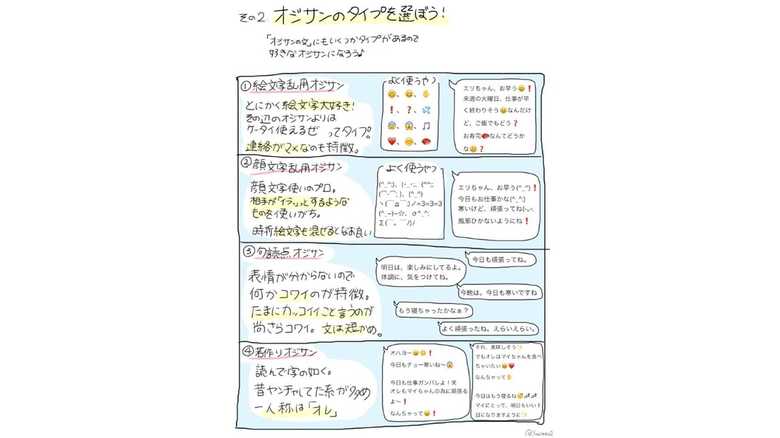 その2 オジサンのタイプを選ぼう!
「オジサンの文」にもいくつかタイプがあるので
好きなオジサンになろう♪
①絵文字乱用オジサン
とにかく絵文字大好き!
その辺のオジサンよりは
ケータイ使えるぜ ってタイプ。
連絡がマメなのも特徴。
よく使うやつ
❗、❓💦
エリちゃん、お早う😄❗
来週の火曜日、仕事が早
く終わりそう😄なんだけ
ど、ご飯でもどう❓
お寿司🍣なんてどうか
な😄❓
②顔文字乱用オジサン
顔文字使いのプロ。
相手が「イラッ」とするような
ものを使いがち。
時折絵文字を混ぜるとなお良い
よく使うやつ
エリちゃん、お早う(^_^)❗
今日もお仕事かな(^_^)
寒いけど、頑張ってね
風邪ひかないようにね❗
③句読点オジサン
表情が分からないので
何かコワイのが特徴。
たまにカッコイイこと言うのが
尚さらコワイ。文は短かめ。
今日も頑張ってね。
明日は、楽しみにしてるよ。
体調に、気をつけてね。
今晩は、今日も寒いですね
もう寝ちゃったかなぁ?
よく頑張ったね。えらいえらい。
④若作りオジサン
読んで字の如く。
昔ヤンチャしてた系が多め
一人称は「オレ」
オハヨー😄🌞❗
今日もチョー寒いね〜😱
今日も仕事ガンバしよ!笑
オレもマイちゃんの為に頑張る
よ〜❗
なんちゃって😄❗
それ、美味しそう✨
でもオレはマイちゃんを食べ
ちゃいたい😄❤
なんちゃって
今日はもう寝るね😴💤💤
マイにとって、明日もいい1
日になりますように✨